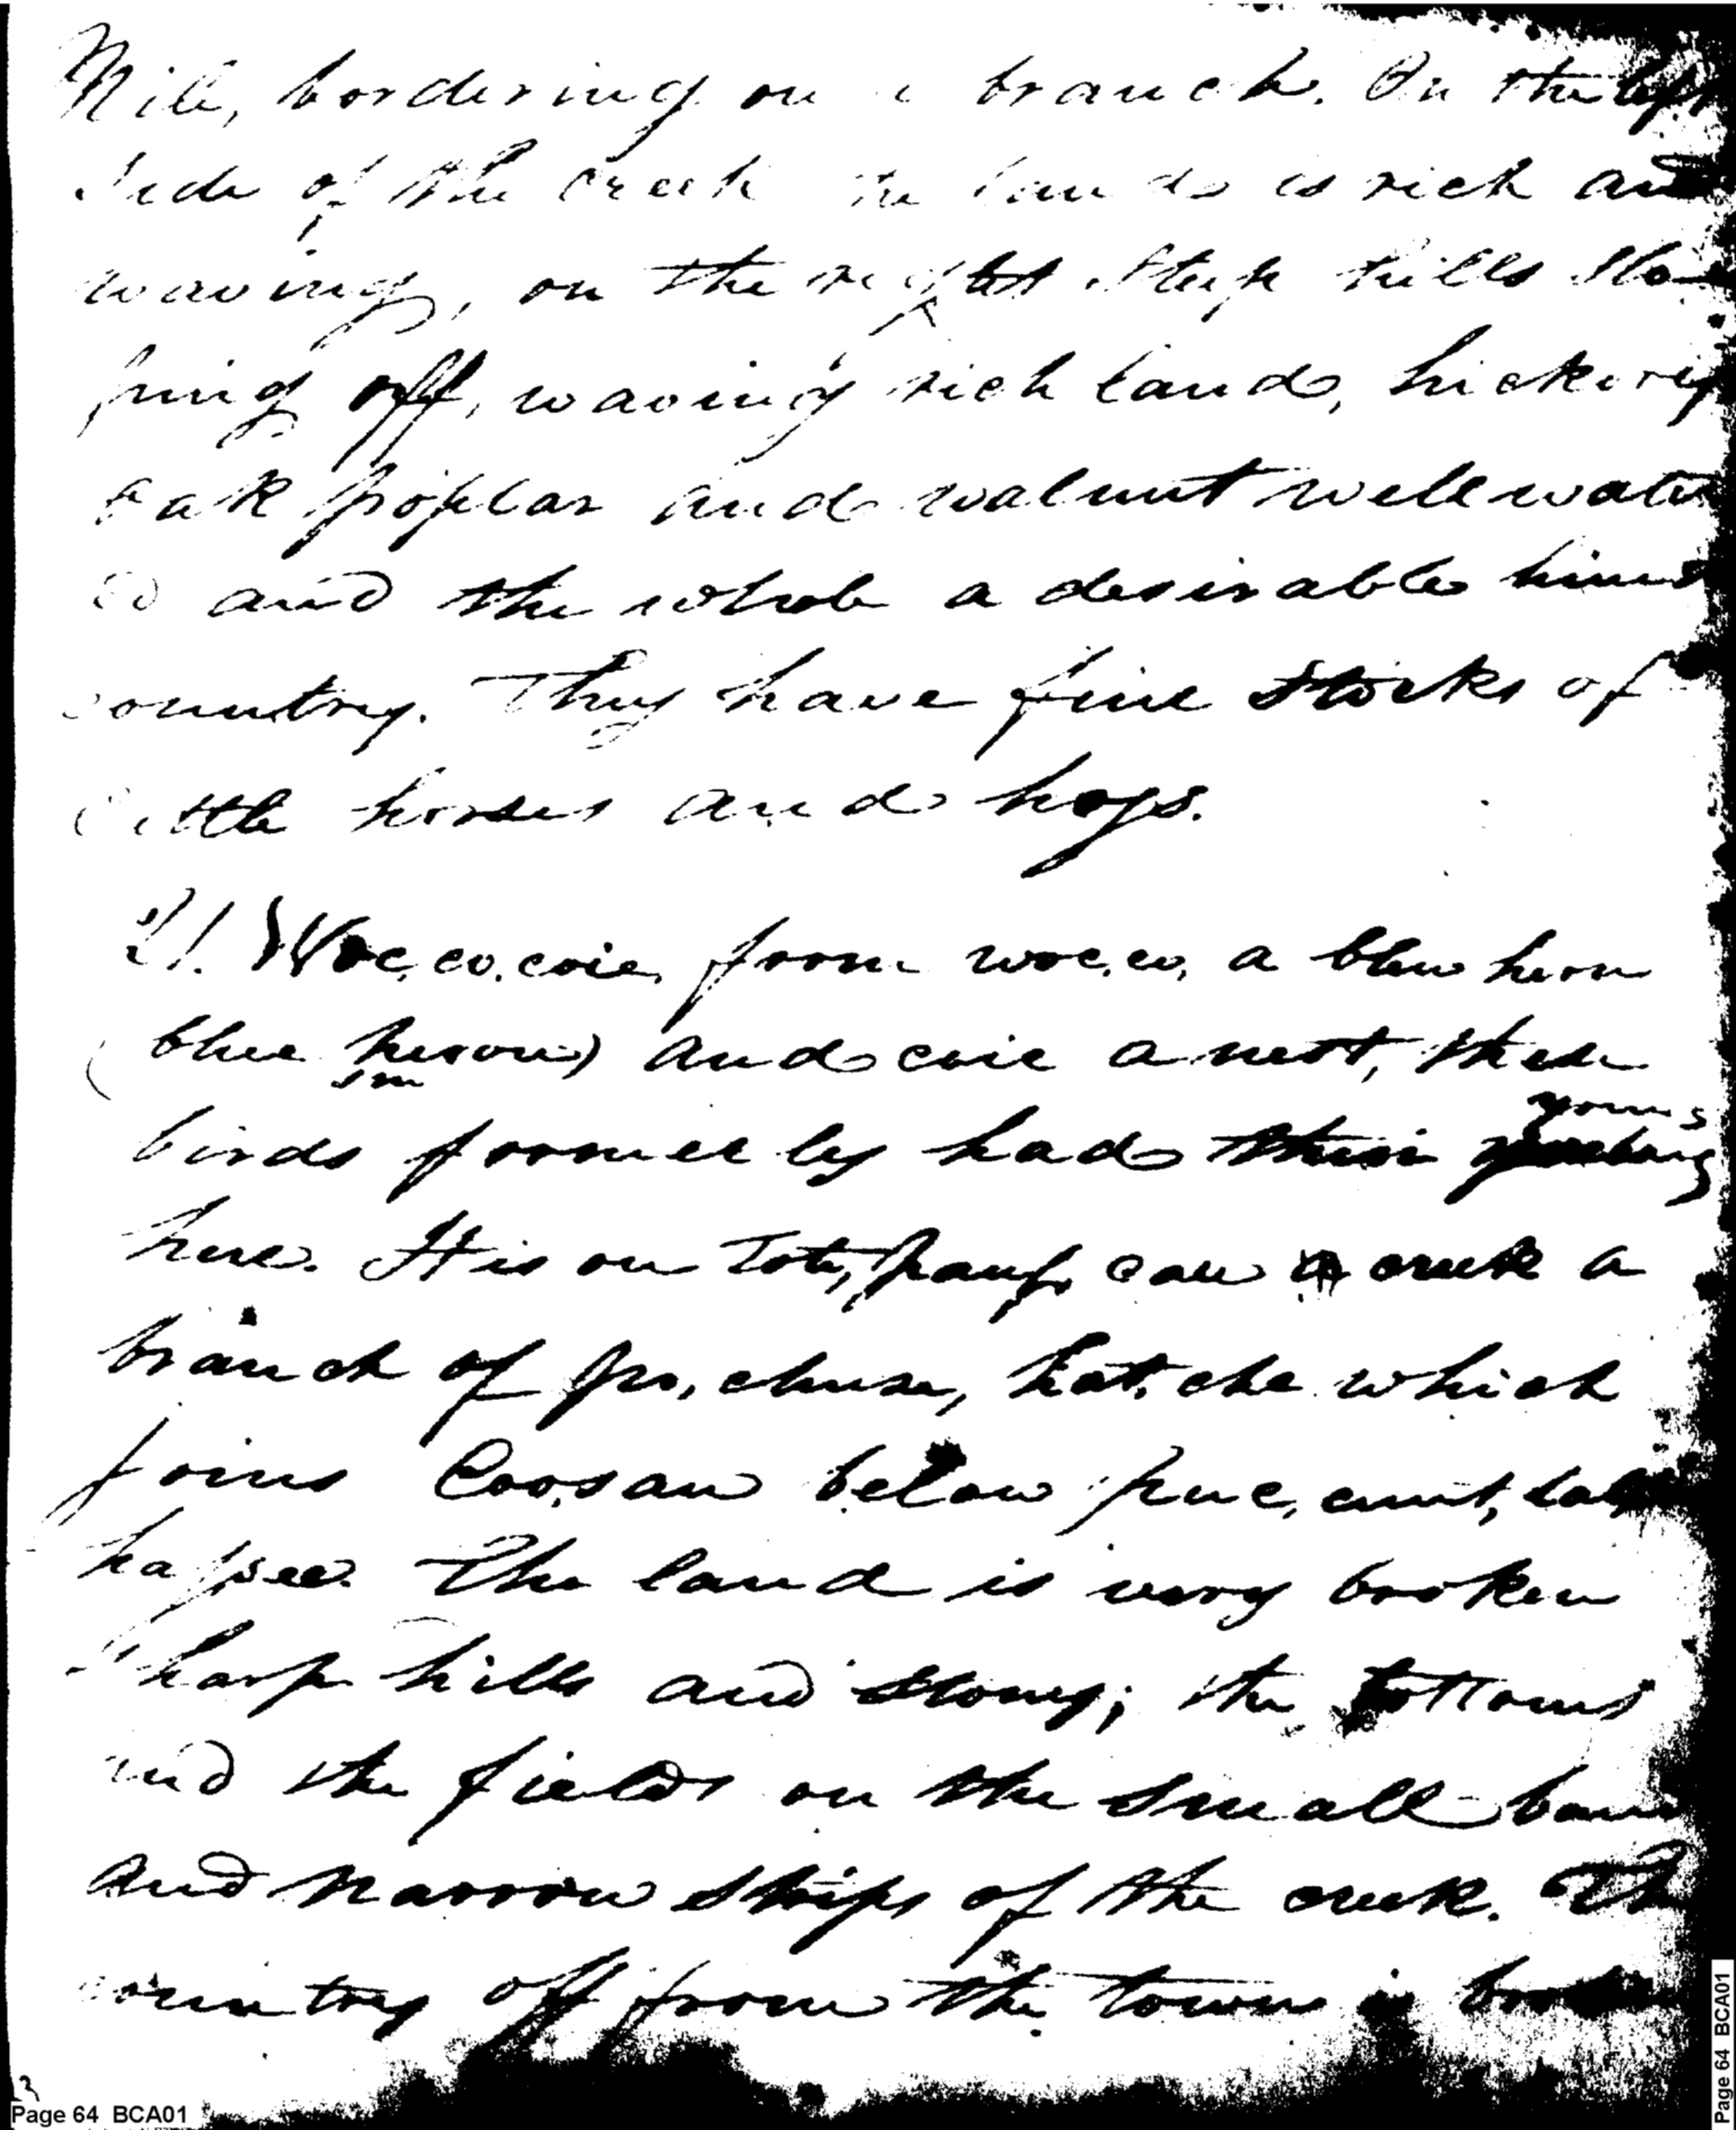 Nile, bordering on a branch. On the left
side of the creek the lands is rich and
waving, on the right steep hills slo
ping off, waving rich land, hickory
oak poplar and walnut well water
ed and the whole a desirable
country. They have fine stocks of
cattle horses and hogs.
21. Woc,co.coie, from woc.co, a blew horn
(blue heron) and coie a nest, these
birds formerly had their young
here. It is on Tote,pauf, cau creek a
branch of po,chuse,hat,che which
joins Coo,sau below puc,cunt,tal,
hassee. The land is very broken
sharp hills and stoney; the bottoms
and the fields on the small
and narrow strips of the creek. The
country off from the town is broken
Page 64 BCA01
Page 64 BCA01